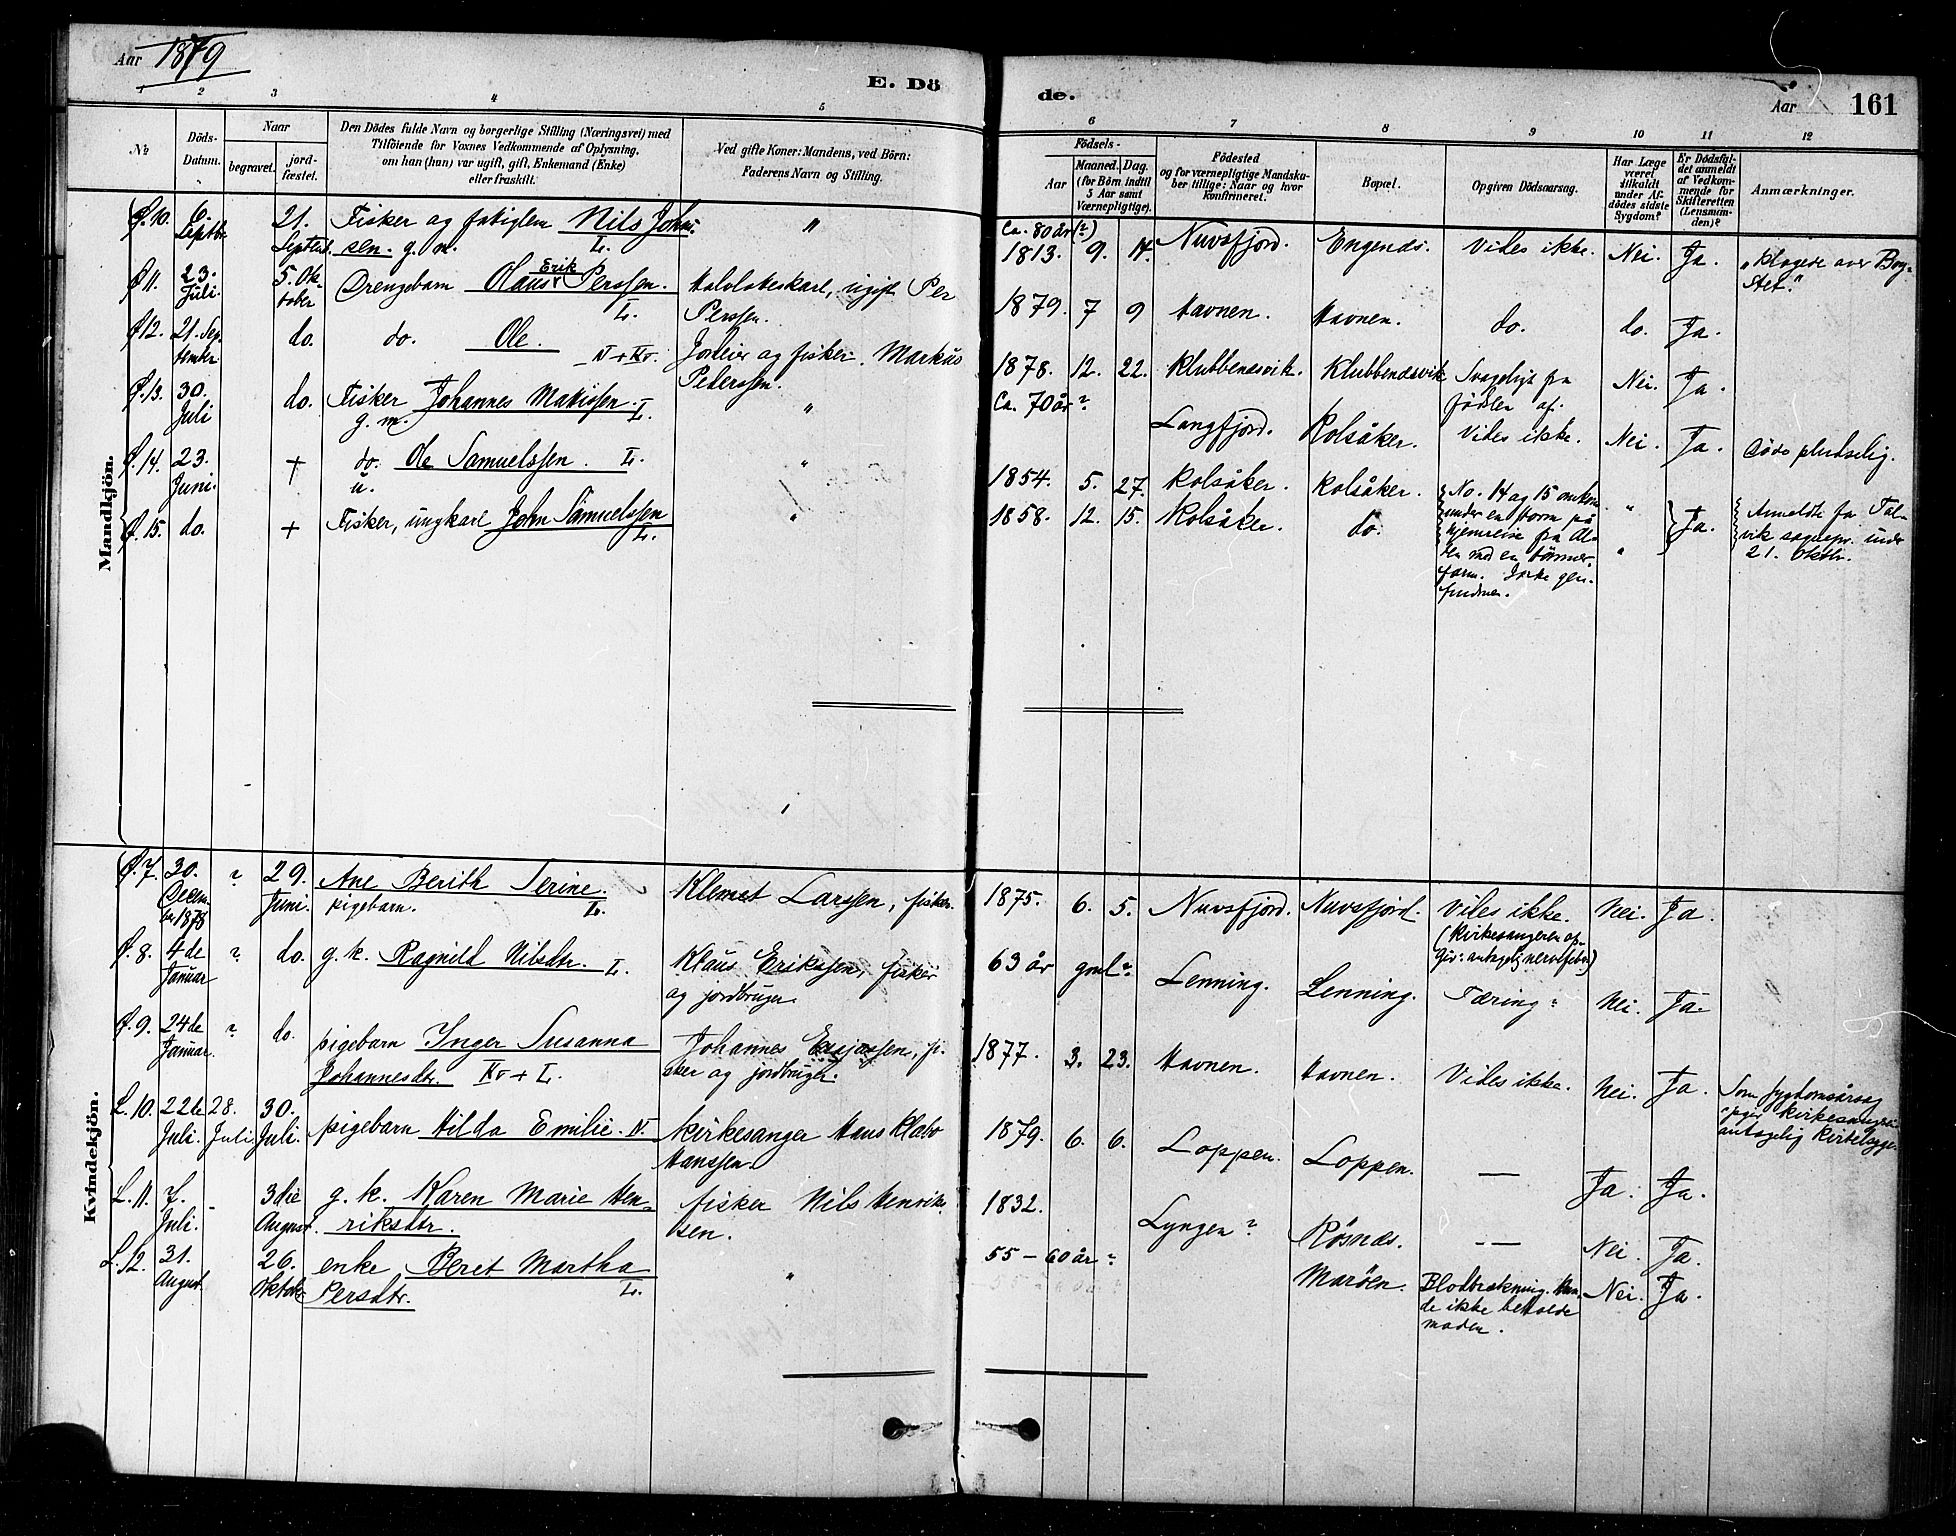 Aar 1879
E. Dö
de.
Aar
161
1 2 3 4 5 6 7 8 9 10 11 12
No
Döds-
Datum.
Naar
begravet.
jord-
fæstet.
Den Dödes fulde Navn og borgerlige Stilling (Næringsvei) med
Tilföiende for Voxnes Vedkommende af Oplysning,
om han (hun) var ugift, gift, Enkemand (Enke)
eller fraskilt.
Ved gifte Koner: Mandens, ved Börn:
Faderens Navn og Stilling.
Födsels-
Aar
Maaned. Dag.
(for Börn indtil
5 Aar samt
Værnepligtige).
Födested
og for værnepligtige Mandska-
ber tillige: Naar og hvor
konfirmeret.
Bopæl.
Opgiven Dödsaarsag.
Har Læge
været
tilkaldt
under Af-
dödes sidste
Sygdom?
Er Dödsfal-
det anmeldt
af Vedkom-
mende for
Skifteretten
(Lensman-
den)?
Anmærkninger.
Mandkjön.
Ø. 10. 6. Septbr. 21. Septemb. Fisker og fatiglem Nils Johns-
sen. g. m. L. " Ca. 80 år (?)
1813. 9. 14. Nuvsfjord. Engenæs. Vides ikke. Nei. Ja. "Klagede over Bry-
stet."
Ø. 11. 23. Juli. 5. Ok-
tober Drengebarn Olaus Erik Perssen. L. ugift Per
Perssen. 1879. 7 9 Havnen. Havnen. do. do. Ja.
Ø. 12. 21. Sep-
tember do. do. Ole. N + Kv. Jordeier og fisker. Markus
Peterssen. 1878. 12. 22. Klubbenæsvik. Klubbenæsvik Svageligt fra
födslen af. Nei. Ja.
Ø. 13. 30. Juli do. Fisker Johannes Matissen. L.
g. m. " Ca. 70 år? Langfjord. Kolsåker. Vides ikke. Nei. Ja. Döde pludselig.
Ø. 14. 23. Juni. + do. Ole Samuelssen. L.
u. " 1854. 5. 27. Kolsåker. Kolsåker. No. 14 og 15 omkom
under en storm på
hjemreise fra Al-
ten med en tömmer-
farm. Ikke gen-
fundne. "
Ø. 15. do. + Fisker, ungkarl John Samuelssen L. " 1858. 12. 15. Kolsåker. do. " Ja. Anmeldt fra Tal-
vik sognepr. under
21. Oktbr.
Kvindekjön.
Ø. 7. 30. Decem-
ber 1878 ? 29. Juni. Ane Berith Serine. L.
pigebarn. Klemet Larssen, fisker. 1875. 6. 5. Nuvsfjord. Nuvsfjord. Vides ikke.
(Kirkesangeren op-
giv: antagelig nervefeber) Nei. Ja.
Ø. 8. 4de Januar ? do. g. k. Ragnild Nilsdtr. L. Klaus Erikssen, fisker
og jordbruger. 63 år gml? Lenning. Lenning. Tæring? Nei. Ja.
Ø. 9. 24de Januar. ? do. pigebarn Inger Susanna
Johannesdtr. Kv + L. Johannes fi-
sker og jordbruger. 1877. 3. 23. Havnen. Havnen. Vides ikke. Nei. Ja. Som sygdomsårsag
kirkesangeren
antagelig kirtelsyge.
L. 10. 22de Juli. 28. Juli. 30. Juli. pigebarn Hilda Emilie. N. kirkesanger Hans Klæbo
Hanssen. 1879. 6. 6. Loppen. Loppen. — Ja. Ja.
L. 11. 7. Juli. - 3die August. g. k. Karen Marie Hen-
riksdtr. fisker Nils Henrik-
sen. 1832. Lyngen? Rösnæs. — Nei. Ja.
L. 12. 31. August 26. Oktober enke Beret Martha
Persdtr. L. " 55 – 60 år? Maröen. Blodbrækning. Kun-
de ikke beholde
maden. Nei. Ja.